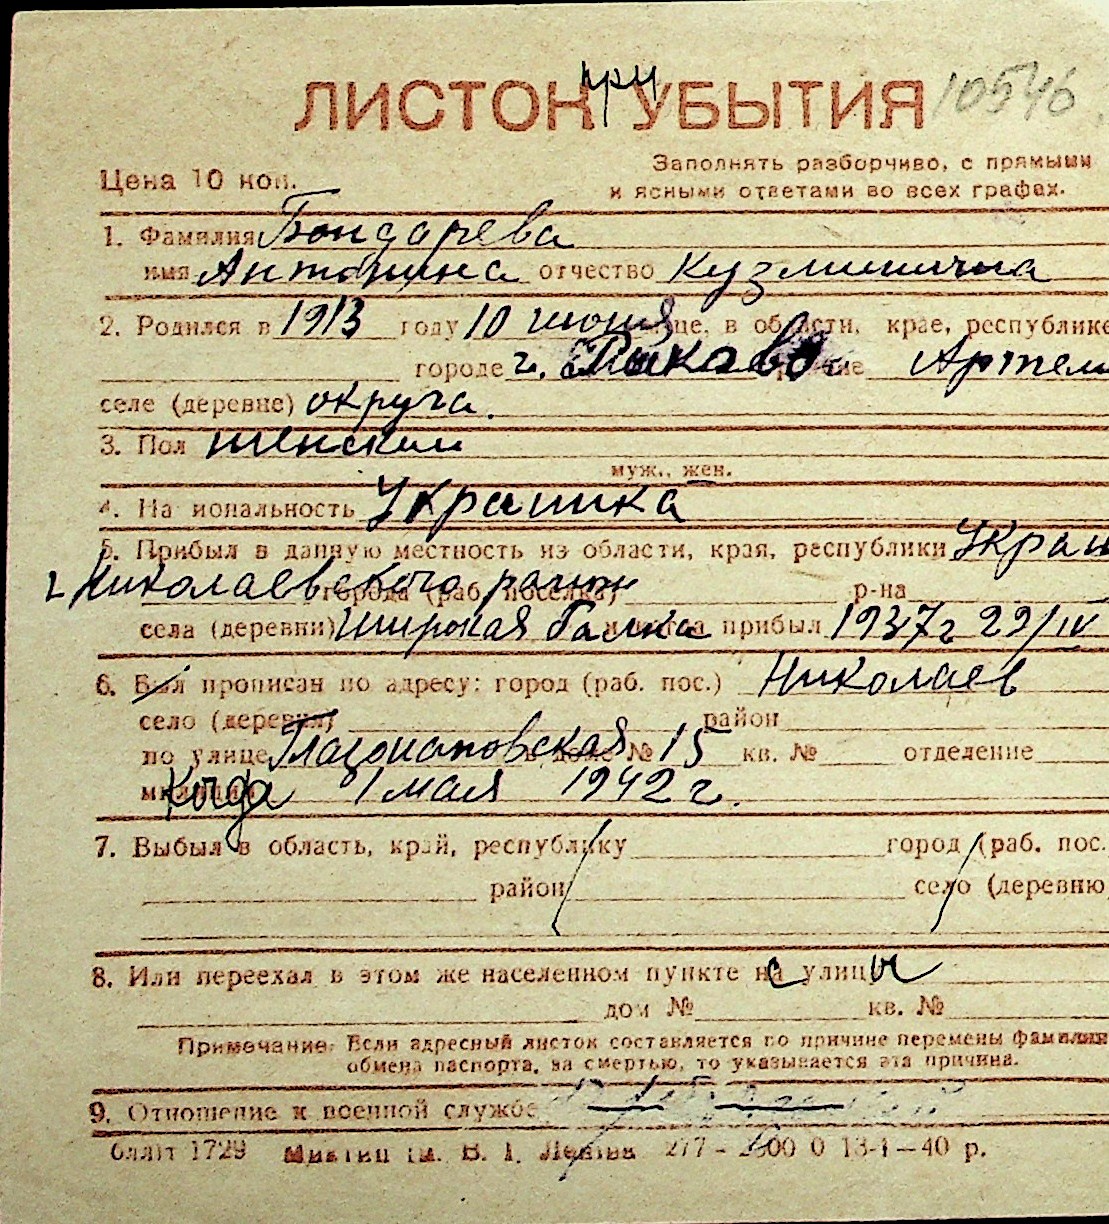 при
ЛИСТОК УБЫТИЯ 10546
Заполнять разборчиво, с прямыми
Цена 10 коп.
и ясными ответами во всех графах.
1. Фамилия Бондарева
имя Антонина отчество Кузминична
2. Родился в 1913 году 10 июня в области, крае, республике
городе г. Рыково Артем
селе (деревне) округа.
3. Пол женский
муж., жен.
4. На иональность Украинка
5. Прибыл в данную местность из области, края, республики Украи
Николаевского района города (раб. поселка) р-на
села (деревни) Широкая Балка прибыл 1937 г 29/IV
6. Был прописан по адресу: город (раб. пос.) Николаев
село (деревня) район
по улице № 15 кв. № отделение
милиции Когда 1 мая 1942 г.
7. Выбыл в область, край, республику город (раб. пос.
район село (деревню
8. Или переехал в этом же населенном пункте с улицы
дом № кв. №
Примечание: Если адресный листок составляется по причине перемены фамилии
обмена паспорта, за смертью, то указывается эта причина.
9. Отношение к военной службе
1729 В. І. 277 - 13-І-40 р.